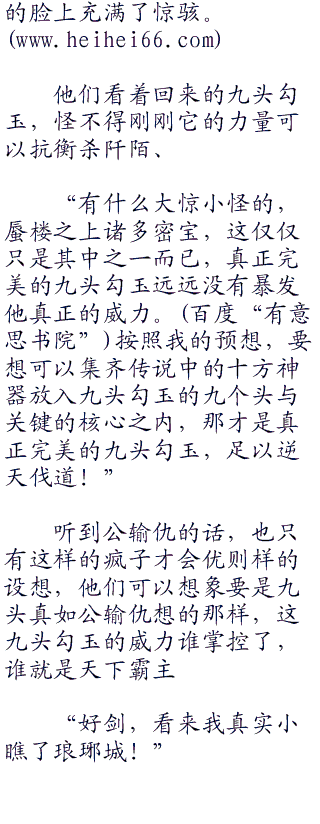 的脸上充满了惊骇。
(www.heihei66.com)
他们看着回来的九头勾
玉，怪不得刚刚它的力量可
以抗衡杀阡陌、
“有什么大惊小怪的，
蜃楼之上诸多密宝，这仅仅
只是其中之一而已，真正完
美的九头勾玉远远没有暴发
他真正的威力。(百度“有意
思书院”)按照我的预想，要
想可以集齐传说中的十方神
器放入九头勾玉的九个头与
关键的核心之内，那才是真
正完美的九头勾玉，足以逆
天伐道！”
听到公输仇的话，也只
有这样的疯子才会优则样的
设想，他们可以想象要是九
头真如公输仇想的那样，这
九头勾玉的威力谁掌控了，
谁就是天下霸主
“好剑，看来我真实小
瞧了琅琊城！”